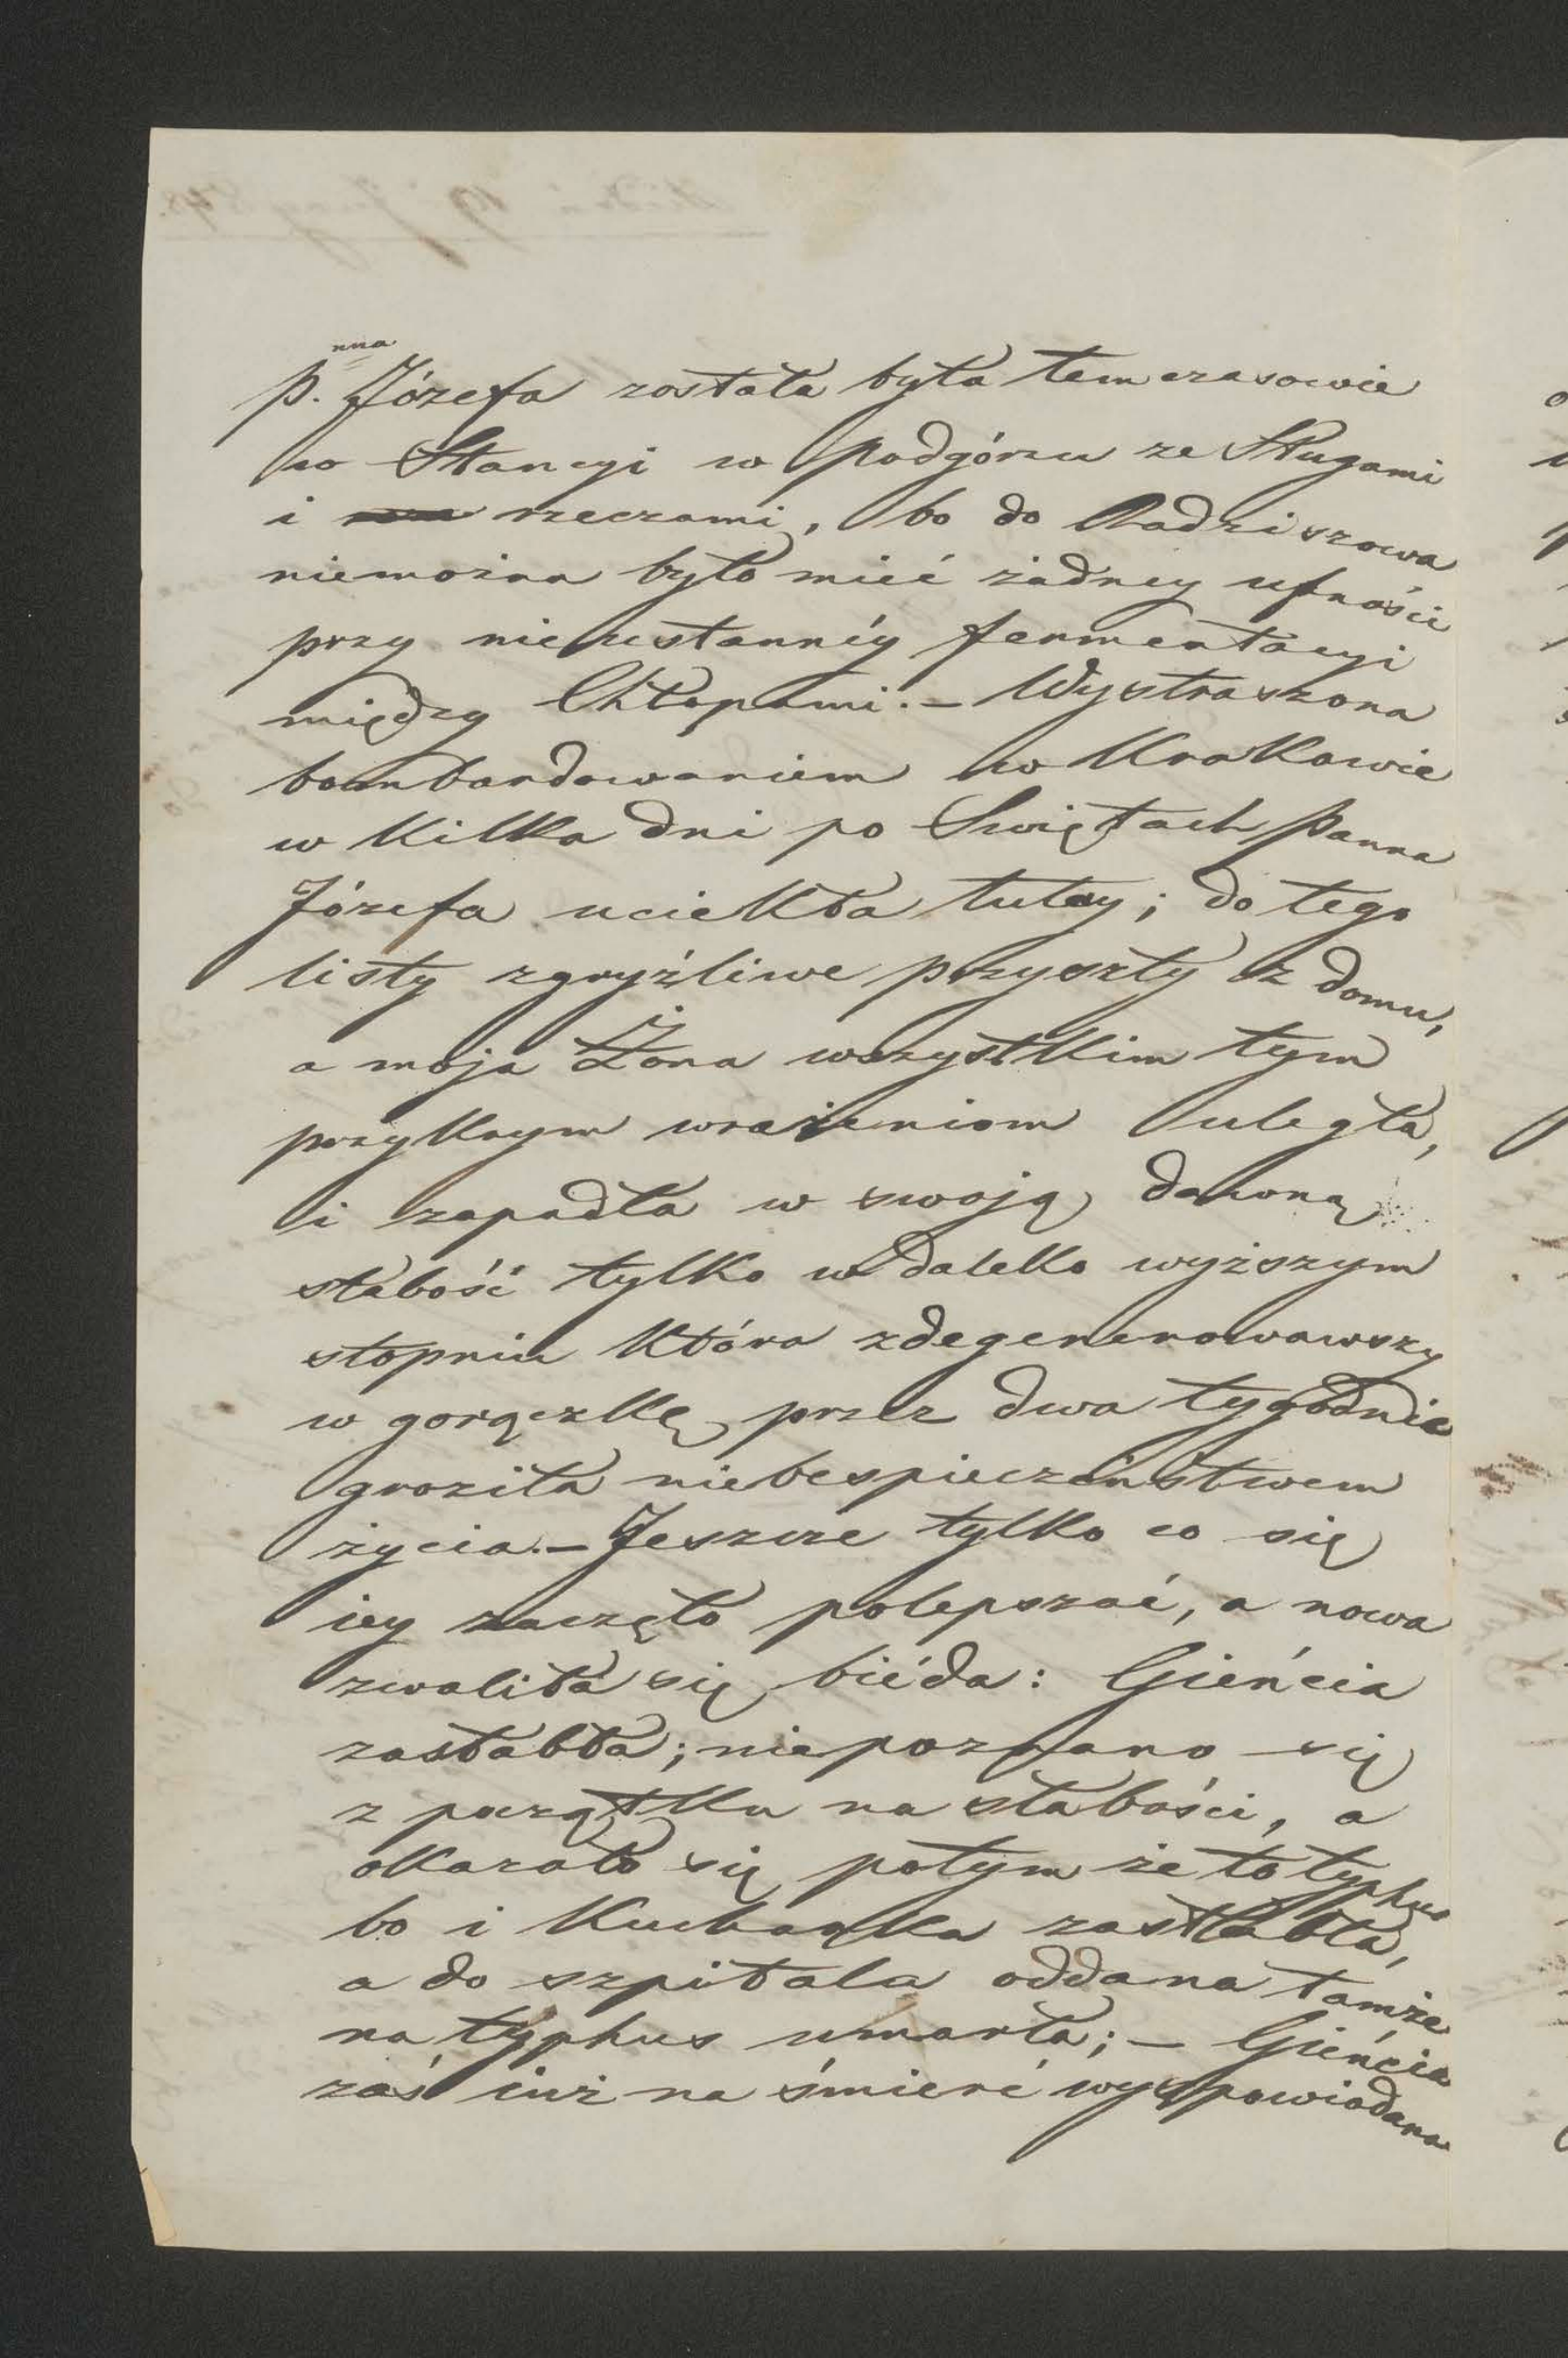 P.nna Józefa została była temczasowie
w Stancyi w Podgórzu ze Sługami
i rzeczami, bo do Radziszowa
niemożna było mieć żadney ufności
przy nieustannéy fermentacyi
między Chłopami. – Wystraszona
bombardowaniem w Krakowie
w kilka dni po Swiętach Panna
Józefa uciekła tutay; do tego
listy zgryźliwe przyszły z domu,
a moja Żona wszystkim tym
przykrym wrażeniom uległa,
i zapadła w swoją dawną
słabość tylko w daleko wyższym
stopniu która zdegenerowawszy
w gorączkę przez dwa tygodnie
groziła niebespieczeństwem
życia. – Jeszcze tylko co się
iey zaczęło polepszać, a nowa
zwaliła się biéda: Gieńcia
zasłabła; niepoznano się
z początku na słabości, a
okazało się potym że to typhus
bo i Kucharka zasłabła,
a do szpitala oddana tamże
na typhus umarła; – Gieńcia
zaś iuż na śmierć wyspowiadana